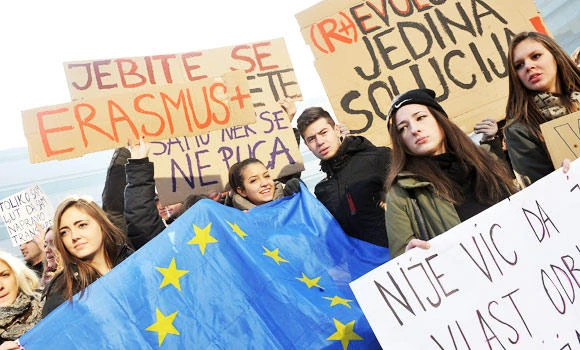 JEBITE SE
ETE
ERASMUS+
SAMO NEK SE
NE PUCA
(R+)EVOLU
JEDINA
SOLUCIJ
TOLIKO
NIJE VIC DA
VLAST ODR